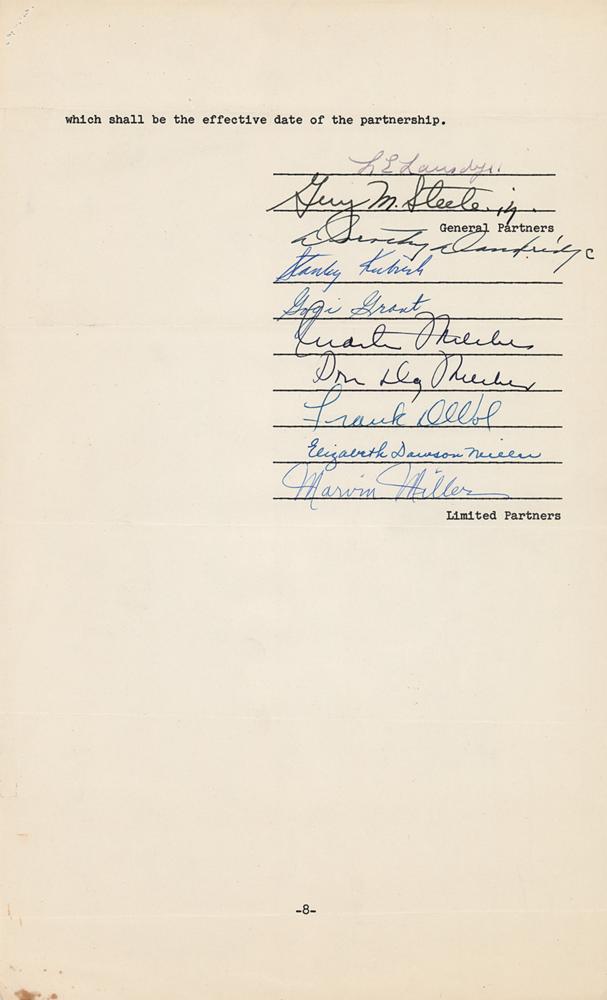 which shall be the effective date of the partnership.
L E Lansdy
M. Steele, jr.
General Partners
Dorothy Dandridge
Stanley Kubrick
Gogi Grant
Don
Frank DeVol
Elizabeth Dawson Miller
Marvin Miller
Limited Partners
-8-